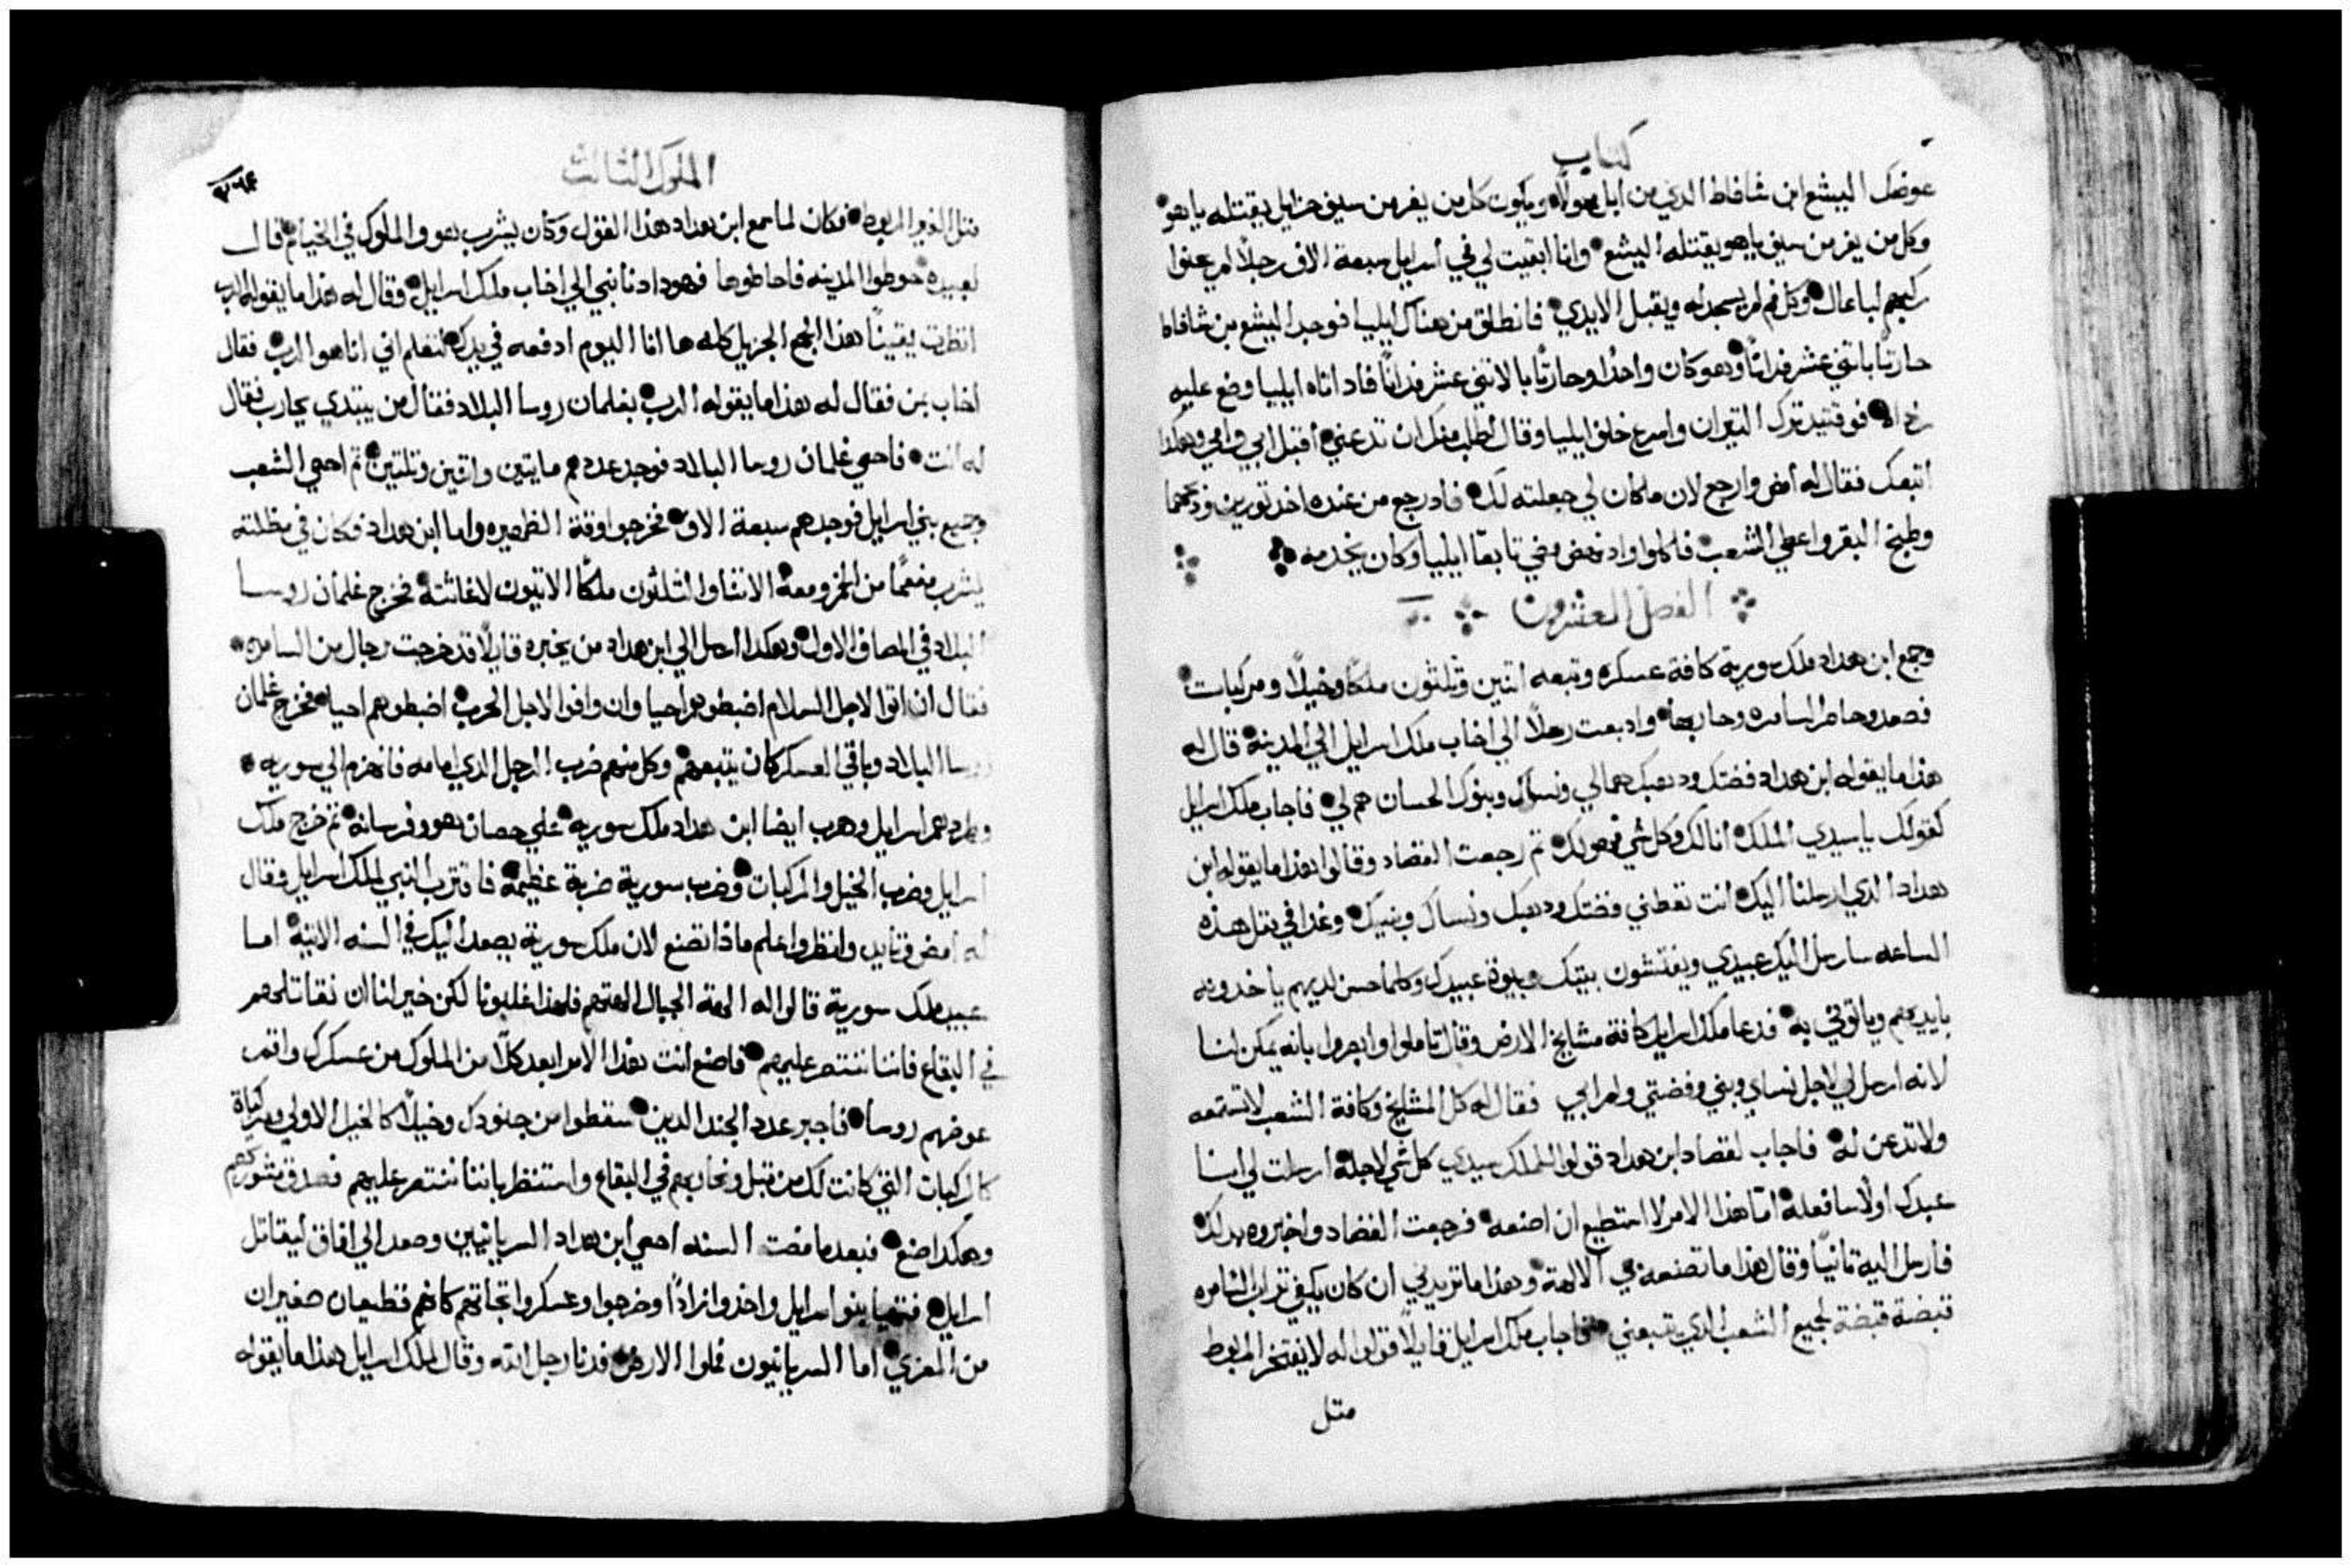 كتاب
عوضك اليشع ابن شافاط الدي من ابل محولا ويكون كل من يفر من سيف حزايل يقتله ياهو
وكل من يفر من سيف ياهو يقتله اليشع وانا ابقيت لي في اسرايل سبعة الاف رجلاً لم يحنوا
ركبهم لباعال وكل فم لم يسجد له ويقبل الايدي فانطلق من هناك ايليا فوجد اليشع بن شافاط
حارتًا باتني عشر فدانًا وهو كان واحدًا وحارتًا بالاتني عشر فدانًا فاد اتاه ايليا وضع عليه
فوقتيد ترك التيران واسرع خلف ايليا وقال اطلب منك ان تدعني اقبل ابي وامي وهكدا
اتبعك فقال له امض وارجع لان ما كان لي جعلته لك فاد رجع من عنده اخد تورين ودبحهما
وطبخ البقر واعطي الشعب فاكلوا واد نهض ومضي تابعًا ايليا وكان يخدمه
الفصل العشرون
وجمع ابن هداد ملك سورية كافة عسكره وتبعه اتنين وتلتون ملكًا وخيلًا ومركبات
فصعد وحاصر السامره وحاربها وادبعت رسلًا الي اخاب ملك اسرايل الي المدينة قال له
هذا ما يقوله ابن هداد فضتك ودهبك هما لي ونساك وبنوك الحسان هم لي فاجاب ملك اسرايل
كقولك يا سيدي الملك انا لك وكل شي فهو لك تم رجعت القصاد وقالوا هذا ما يقوله ابن
هداد الدي ارسلنا اليك انت تعطني فضتك ودهبك ونساك وبنيك وغدا في متل هذه
الساعه سارسل اليك عبيدي ويفتشون بيتك وبيوت عبيدك وكلما حسن لديهم ياخدونه
بايديهم وياتوني به فدعا ملك اسرايل كافة مشايخ الارض وقال تاملوا وابصروا بانه يمكن لنا
لانه ارسل لي لاجل نساي وبني وفضتي ودهبي فقال له كل المشايخ وكافة الشعب لا تستمعه
ولا تدعن له فاجاب لقصاد ابن هداد قولوا للملك سيدي كل شي لاجله ارسلت لي انا
عبدك اولًا سافعله اما هذا الامر لا استطيع ان اصنعه فرجعت القصاد واخبروه بدلك
فارسل اليه تانيًا وقال هذا ما تصنعه بي الالهة وهذا ما تزيدني ان كان يكفي تراب السامره
قبضة قبضة لجميع الشعب الدي يتبعني فاجاب ملك اسرايل قايلًا قولوا له لا يفتخر المربوط
متل
الملوك التالت
متل الغير المربوط فكان لما سمع ابن هداد هذا القول وكان يشرب هو والملوك في الخيام قال
لعبيده حوطوا المدينه فاحاطوها فهودا دنا نبي الي اخاب ملك اسرايل وقال له هذا ما يقوله الرب
انظرت يقينًا هذا الجمع الجزيل كله ها انا اليوم ادفعه في يدك لتعلم اني انا هو الرب فقال
اخاب بمن فقال له هذا ما يقوله الرب بغلمان روسا البلاد فقال من يبتدي يحارب فقال
له انت فاحصي غلمان روسا البلاد فوجد عددهم مايتين واتنين وتلتين تم احصي الشعب
وجميع بني اسرايل فوجدهم سبعة الاف فخرجوا وقت الظهيره واما ابن هداد فكان في مظلته
يشرب مفعمًا من الخمر ومعه الاتنا والتلتون ملكًا الاتيون لاغاثته فخرج غلمان روسا
البلاد في المصاف الاول وهكدا ارسل الي ابن هداد من يخبره قايلًا قد خرجت رجال من السامره
فقال ان اتوا لاجل السلام اضبطوهم احيا وان وافوا لاجل الحرب اضبطوهم احيا فخرج غلمان
روسا البلاد وباقي العسكر كان يتبعهم وكل منهم ضرب الرجل الدي امامه فانهزم الي سوريه
وطردهم اسرايل وهرب ايضا ابن هداد ملك سوريه علي حصان هو وفرسانه تم خرج ملك
اسرايل وضرب الخيل والمركبات وضرب سورية ضربة عظيمة فاقترب النبي لملك اسرايل وقال
له امض وتايد وانظر واعلم ماذا تصنع لان ملك سورية يصعد اليك في السنه الاتية اما
عبيد ملك سورية قالوا له الهة الجبال الهتهم فلهذا غلبونا لكن خير لنا ان نقاتلهم
في البقاع فاننا ننتصر عليهم فاصنع انت هذا الامر ابعد كلًا من الملوك من عسكرك واقم
عوضهم روسا فاجبر عدد الجند الدين سقطوا من جنودك وخيلًا كالخيل الاولي ومركباة
كالمركبات التي كانت لك من قبل ونحاربهم في البقاع واستنظر باننا ننتصر عليهم فصدق مشورتهم
وهكدا صنع فبعد ما مضت السنه احصي ابن هداد السريانيين وصعد الي افاق ليقاتل
اسرايل فتهيا بنو اسرايل واخدوا زادًا وخرجوا وعسكروا تجاتهم كانهم قطيعان صغيران
من المعزي اما السريانيون فملوا الارض فدنا رجل الله وقال لملك اسرايل هذا ما يقوله